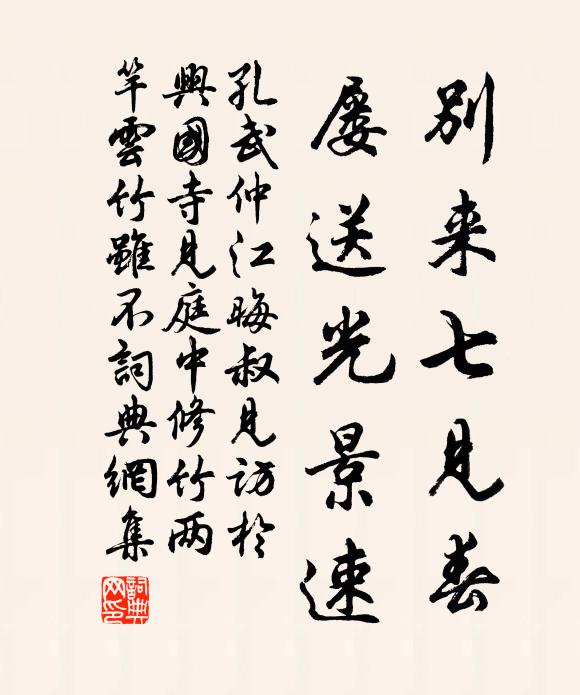 別来七見春
屡送光景速
孔武仲江晦叔見訪於
興國寺見庭中修竹兩
竿雲竹雖不詞典網集
詞典網印